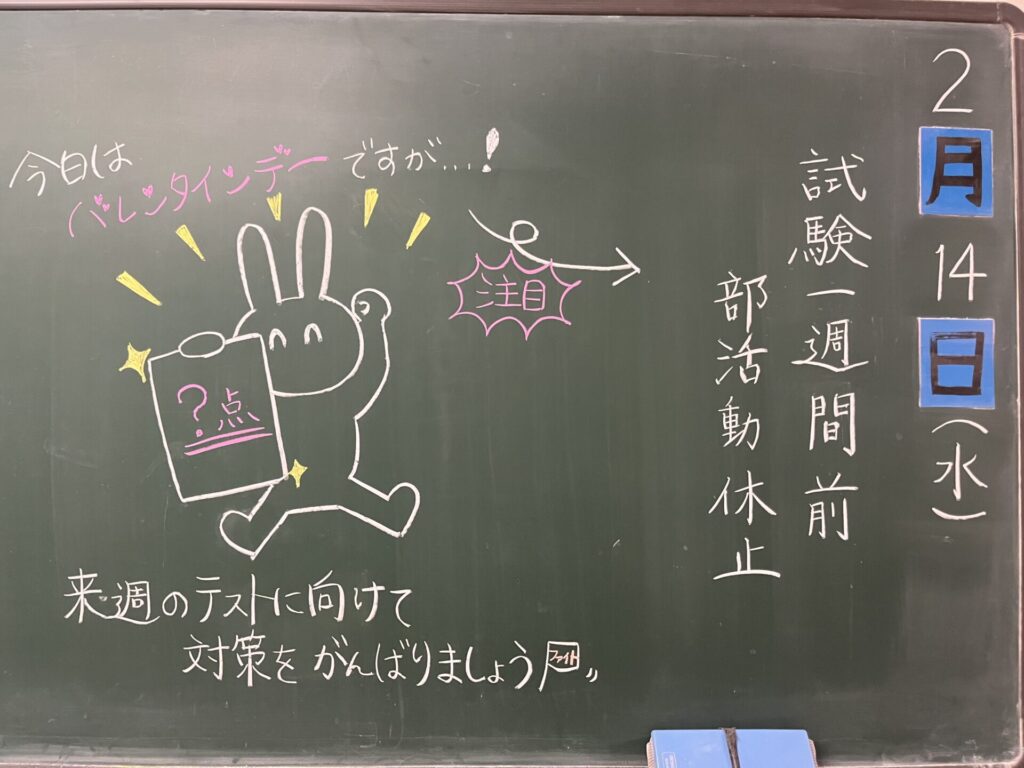 2月14日(水)
試験一週間前
部活動休止
今日は
バレンタインデーですが...!
注目
?点
来週のテストに向けて
対策をがんばりましょう
ファイト